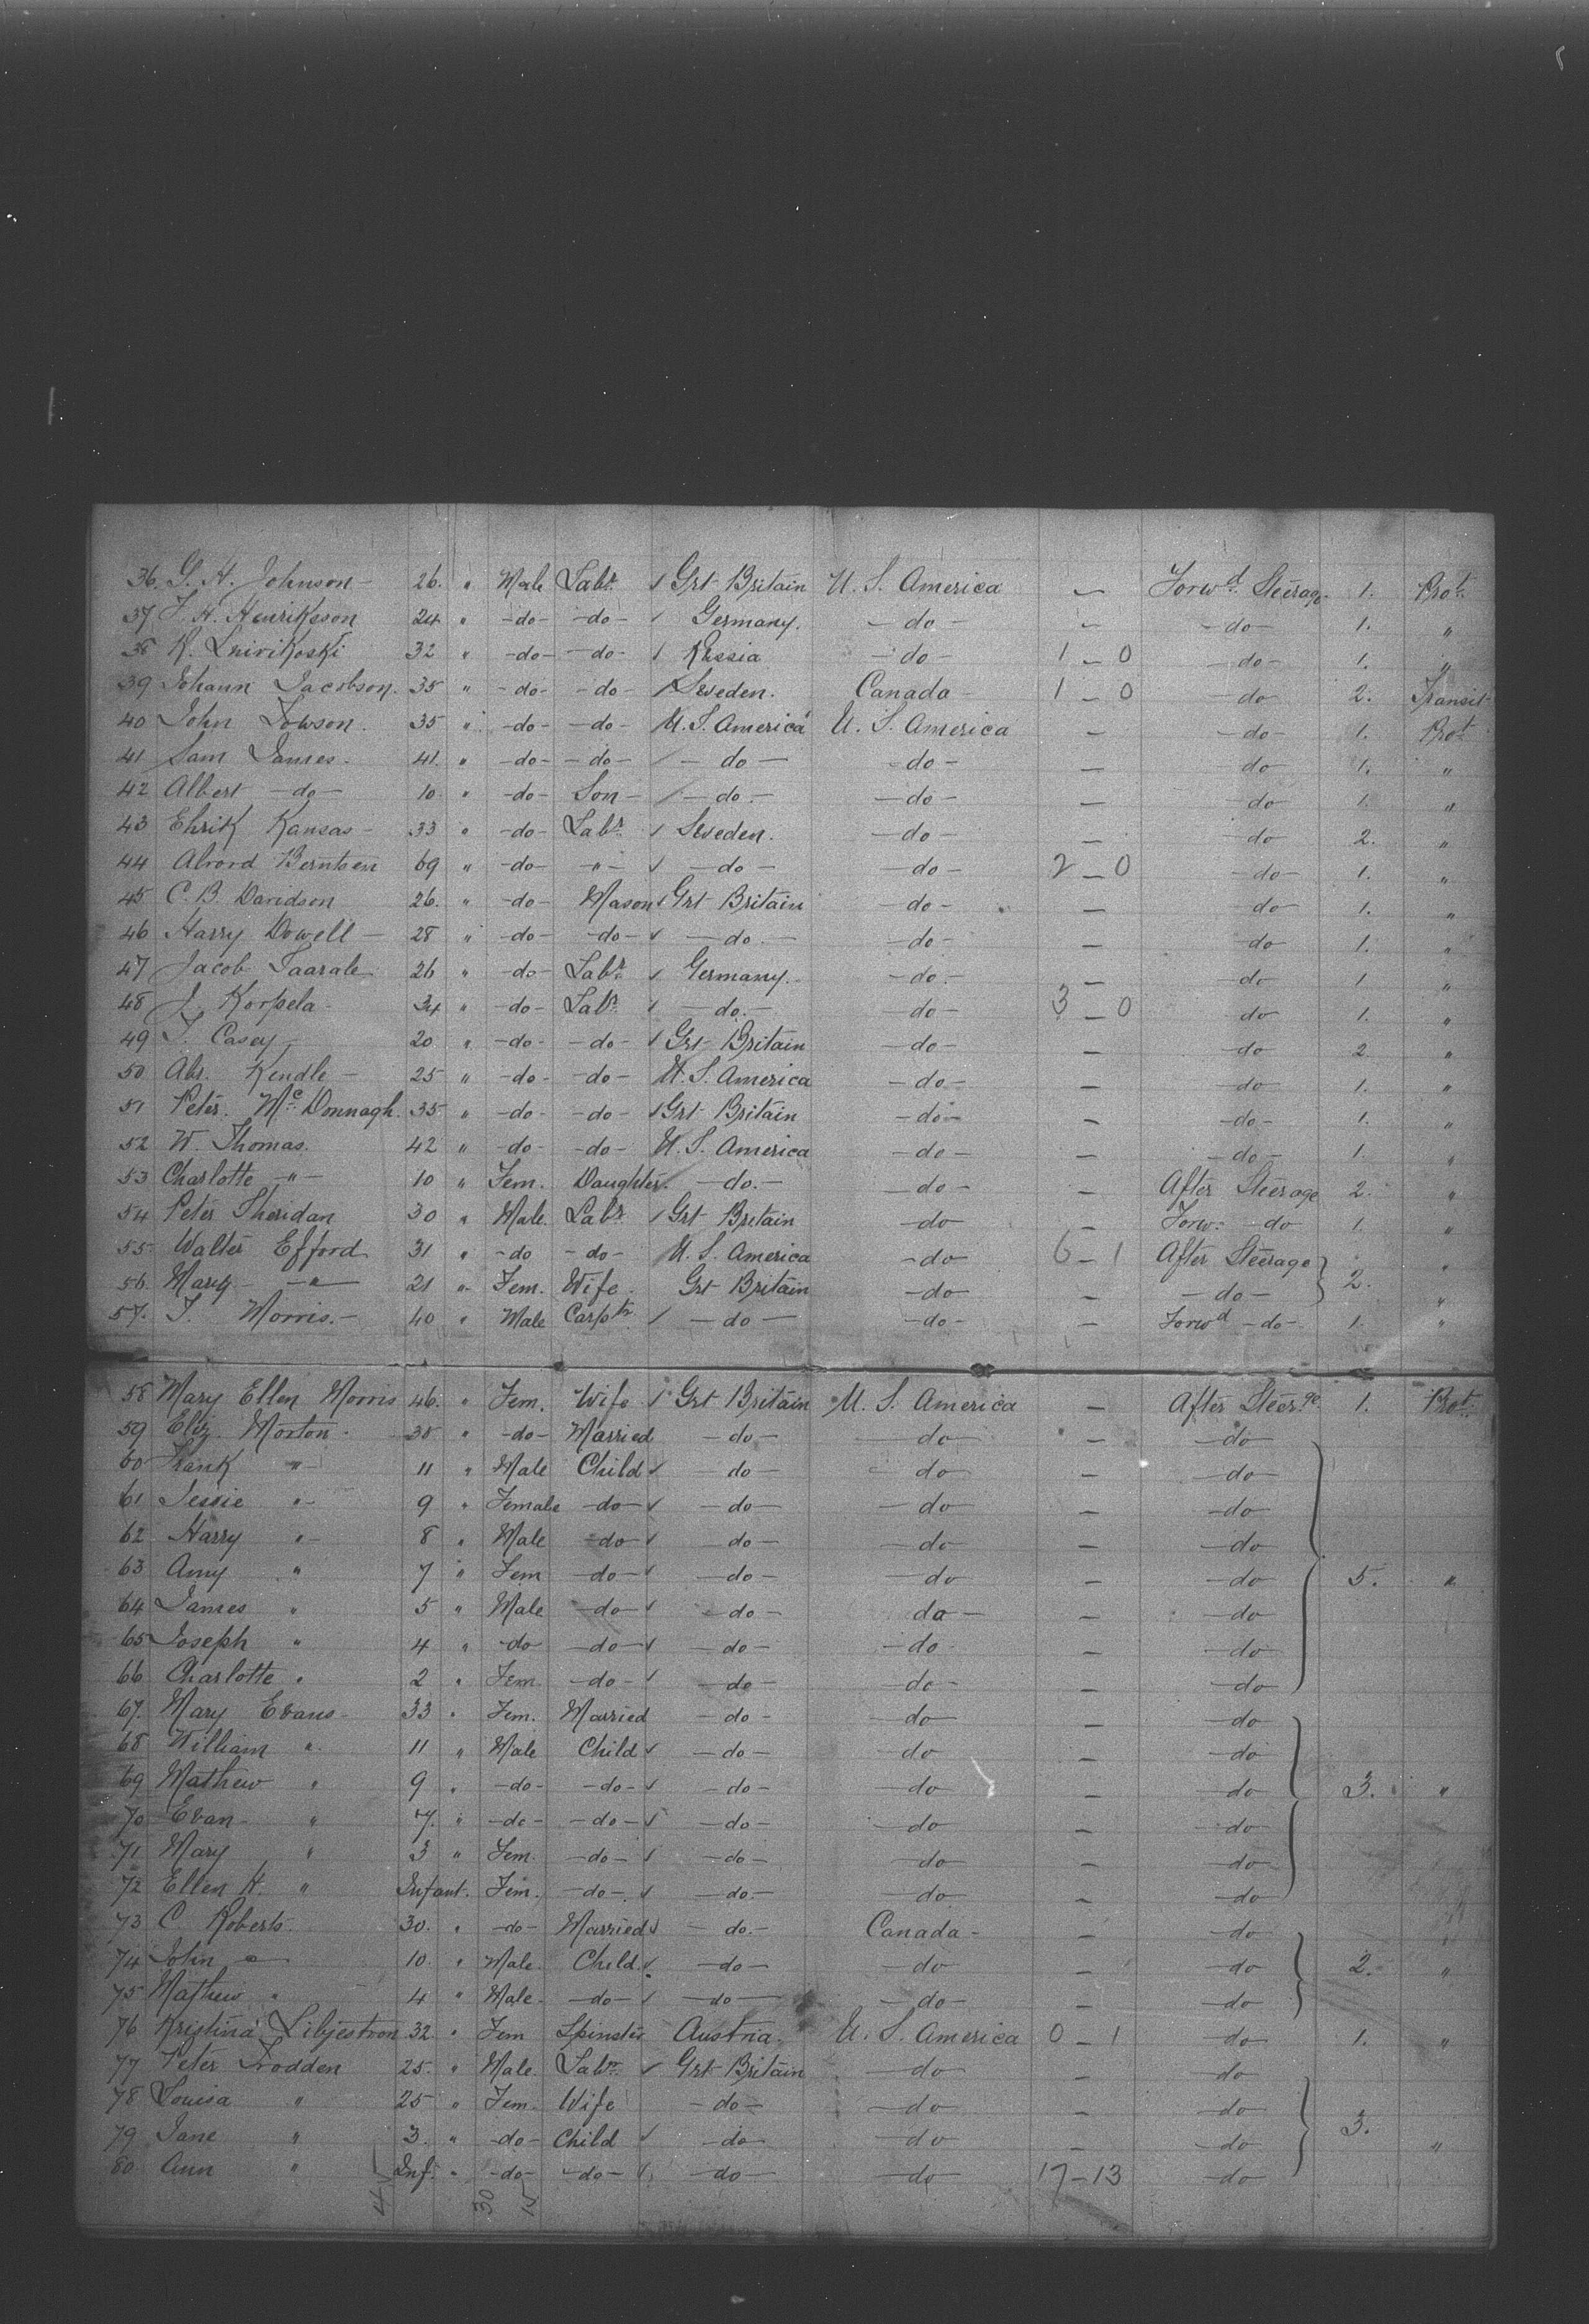 36. G. H. Johnson - 26. " Male Labr. / Grt Britain U. S. America - Forwd. Steerage 1. Prot.
37 F. H. Henrikson 24 " -do- -do- / Germany. -do- - -do- 1. "
38 K. 32 " -do- -do- / Russia -do- 1 - 0 -do- 1. "
39 Johann Jacobson. 35 " -do- -do- / Sweden. Canada - 1 - 0 -do 2. Transit
40 John Towson. 35 " -do- -do- U. S. America U. S. America - -do- 1. Prot.
41 Sam James - 41. " -do- -do- / -do- -do- - do- 1. "
42 Albert -do- 10 " -do- Son - / -do.- -do- - do 1. "
43 Ehrik Kansas - 33 " -do- Labr. / Sweden. -do- - -do 2. "
44 Alvord Berntsen 69 " -do- -"- / -do- -do- 2 - 0 -do- 1. "
45 C. B. Davidson 26. " -do- Mason / Grt Britain -do- - do- 1. "
46 Harry Dowell - 28 " -do- -do- / -do. -do- - -do 1. "
47 Jacob Taarale 26 " -do- Labr. / Germany. -do.- - -do 1 "
48 J. Korpela - 34 " -do- Labr. / -do.- -do- 3 - 0 do 1. "
49 T. Casey, 20. " -do- -do- / Grt Britain -do- - -do 2. "
50 Abr. Kendle - 25 " -do- -do- U. S. America -do- - do 1. "
51 Peter. Mc Donnagh. 35 " -do- -do- / Grt Britain -do- - -do- 1. "
52 W. Thomas. 42 " -do- -do- U. S. America -do- - -do- 1. "
53 Charlotte -"- 10 " Fem. Daughter. -do.- -do- - After Steerage 2. "
54 Peter Sheridan 30 " Male. Labr. / Grt Britain -do - Forw: do 1. "
55 Walter Efford 31 " -do -do- U. S. America -do 6 - 1 After Steerage "
56. Mary - -"- 21 " Fem. Wife. Grt Britain -do - -do- 2. "
57. T. Morris. - 40 " Male Carptr. / -do- -do- - Forwd -do- 1. "
58 Mary Ellen Morris 46. " Fem. Wife / Grt Britain U. S. America - After Steerge 1. Prot.
59 Eliz. Morton - 38 " -do- Married -do- do - -do
60 Frank " 11 " Male Child / -do- do - -do
61 Jessie " 9 " Female -do- / -do- -do - -do
62 Harry " 8 " Male -do / -do- -do - -do
63 Amy " 7 " Fem -do- / -do- -do - -do 5. "
64 James " 5 " Male -do / -do- do - - -do
65 Joseph " 4 " -do -do- / -do- -do - -do
66 Charlotte " 2 " Fem. -do- / -do- -do- - -do
67. Mary Evans - 33 " Fem. Married -do- -do - -do
68 William " 11 " Male Child / -do- -do - -do
69 Mathew " 9 " -do- -do- / -do- -do - -do 3. "
70 Evan " 7. " -do- -do- / -do- -do - -do
71 Mary " 3 " Fem. -do- / -do- do - -do
72 Ellen H. " Infant. Fem. -do- / -do.- -do - -do
73 C. Roberts. 30. " -do- Married / -do.- Canada - - -do "
74 John " 10 " Male. Child / -do- -do - -do 2. "
75 Mathew " 4 " Male. -do- / -do- -do- - -do
76 Kristina Liljestron 32. " Fem Spinster Austria. U. S. America 0 - 1 do 1. "
77 Peter Trodden 25. " Male. Labr. / Grt Britain do - do
78 Louisa " 25 " Fem. Wife -do- -do - -do
79 Jane " 3. " -do- Child / -do -do - -do 3. "
80 Ann " Inf. " -do- -do- / -do- -do 17 - 13 -do
30 15